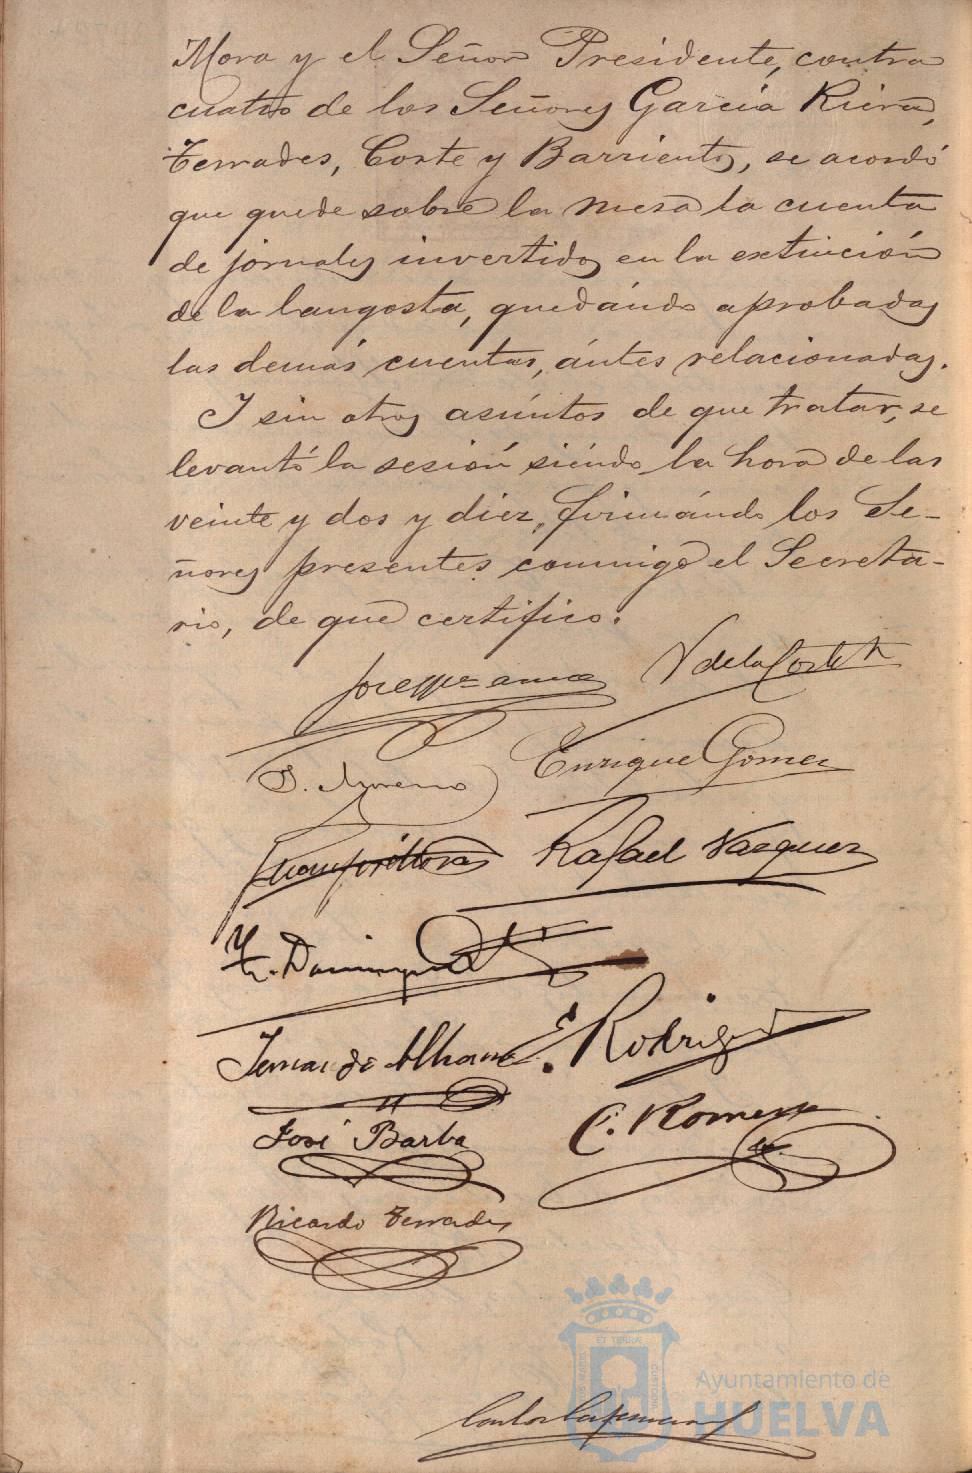 Mora y el Señor Presidente, contra
cuatro de los Señores García Riera,
Terrades, Corte y Barrientos, se acordó
que quede sobre la mesa la cuenta
de jornales invertidos en la extinción
de la langosta, quedándo aprobadas
las demás cuentas, ántes relacionadas.
I sin otros asúntos de que tratar, se
levantó la sesión siéndo la hora de las
veinte y dos y diez, firmándo los Se-
ñores presentes conmigo el Secreta-
rio, de que certifico.
V de la Corte
J. Moreno
Enrique Gomez
Rafael Vazquez
Dominguez
E. Rodrig
José Barba
C. Romero
Ricardo Terrades
ET TERRÆ
CUSTODIA
Ayuntamiento de
HUELVA
Carlos